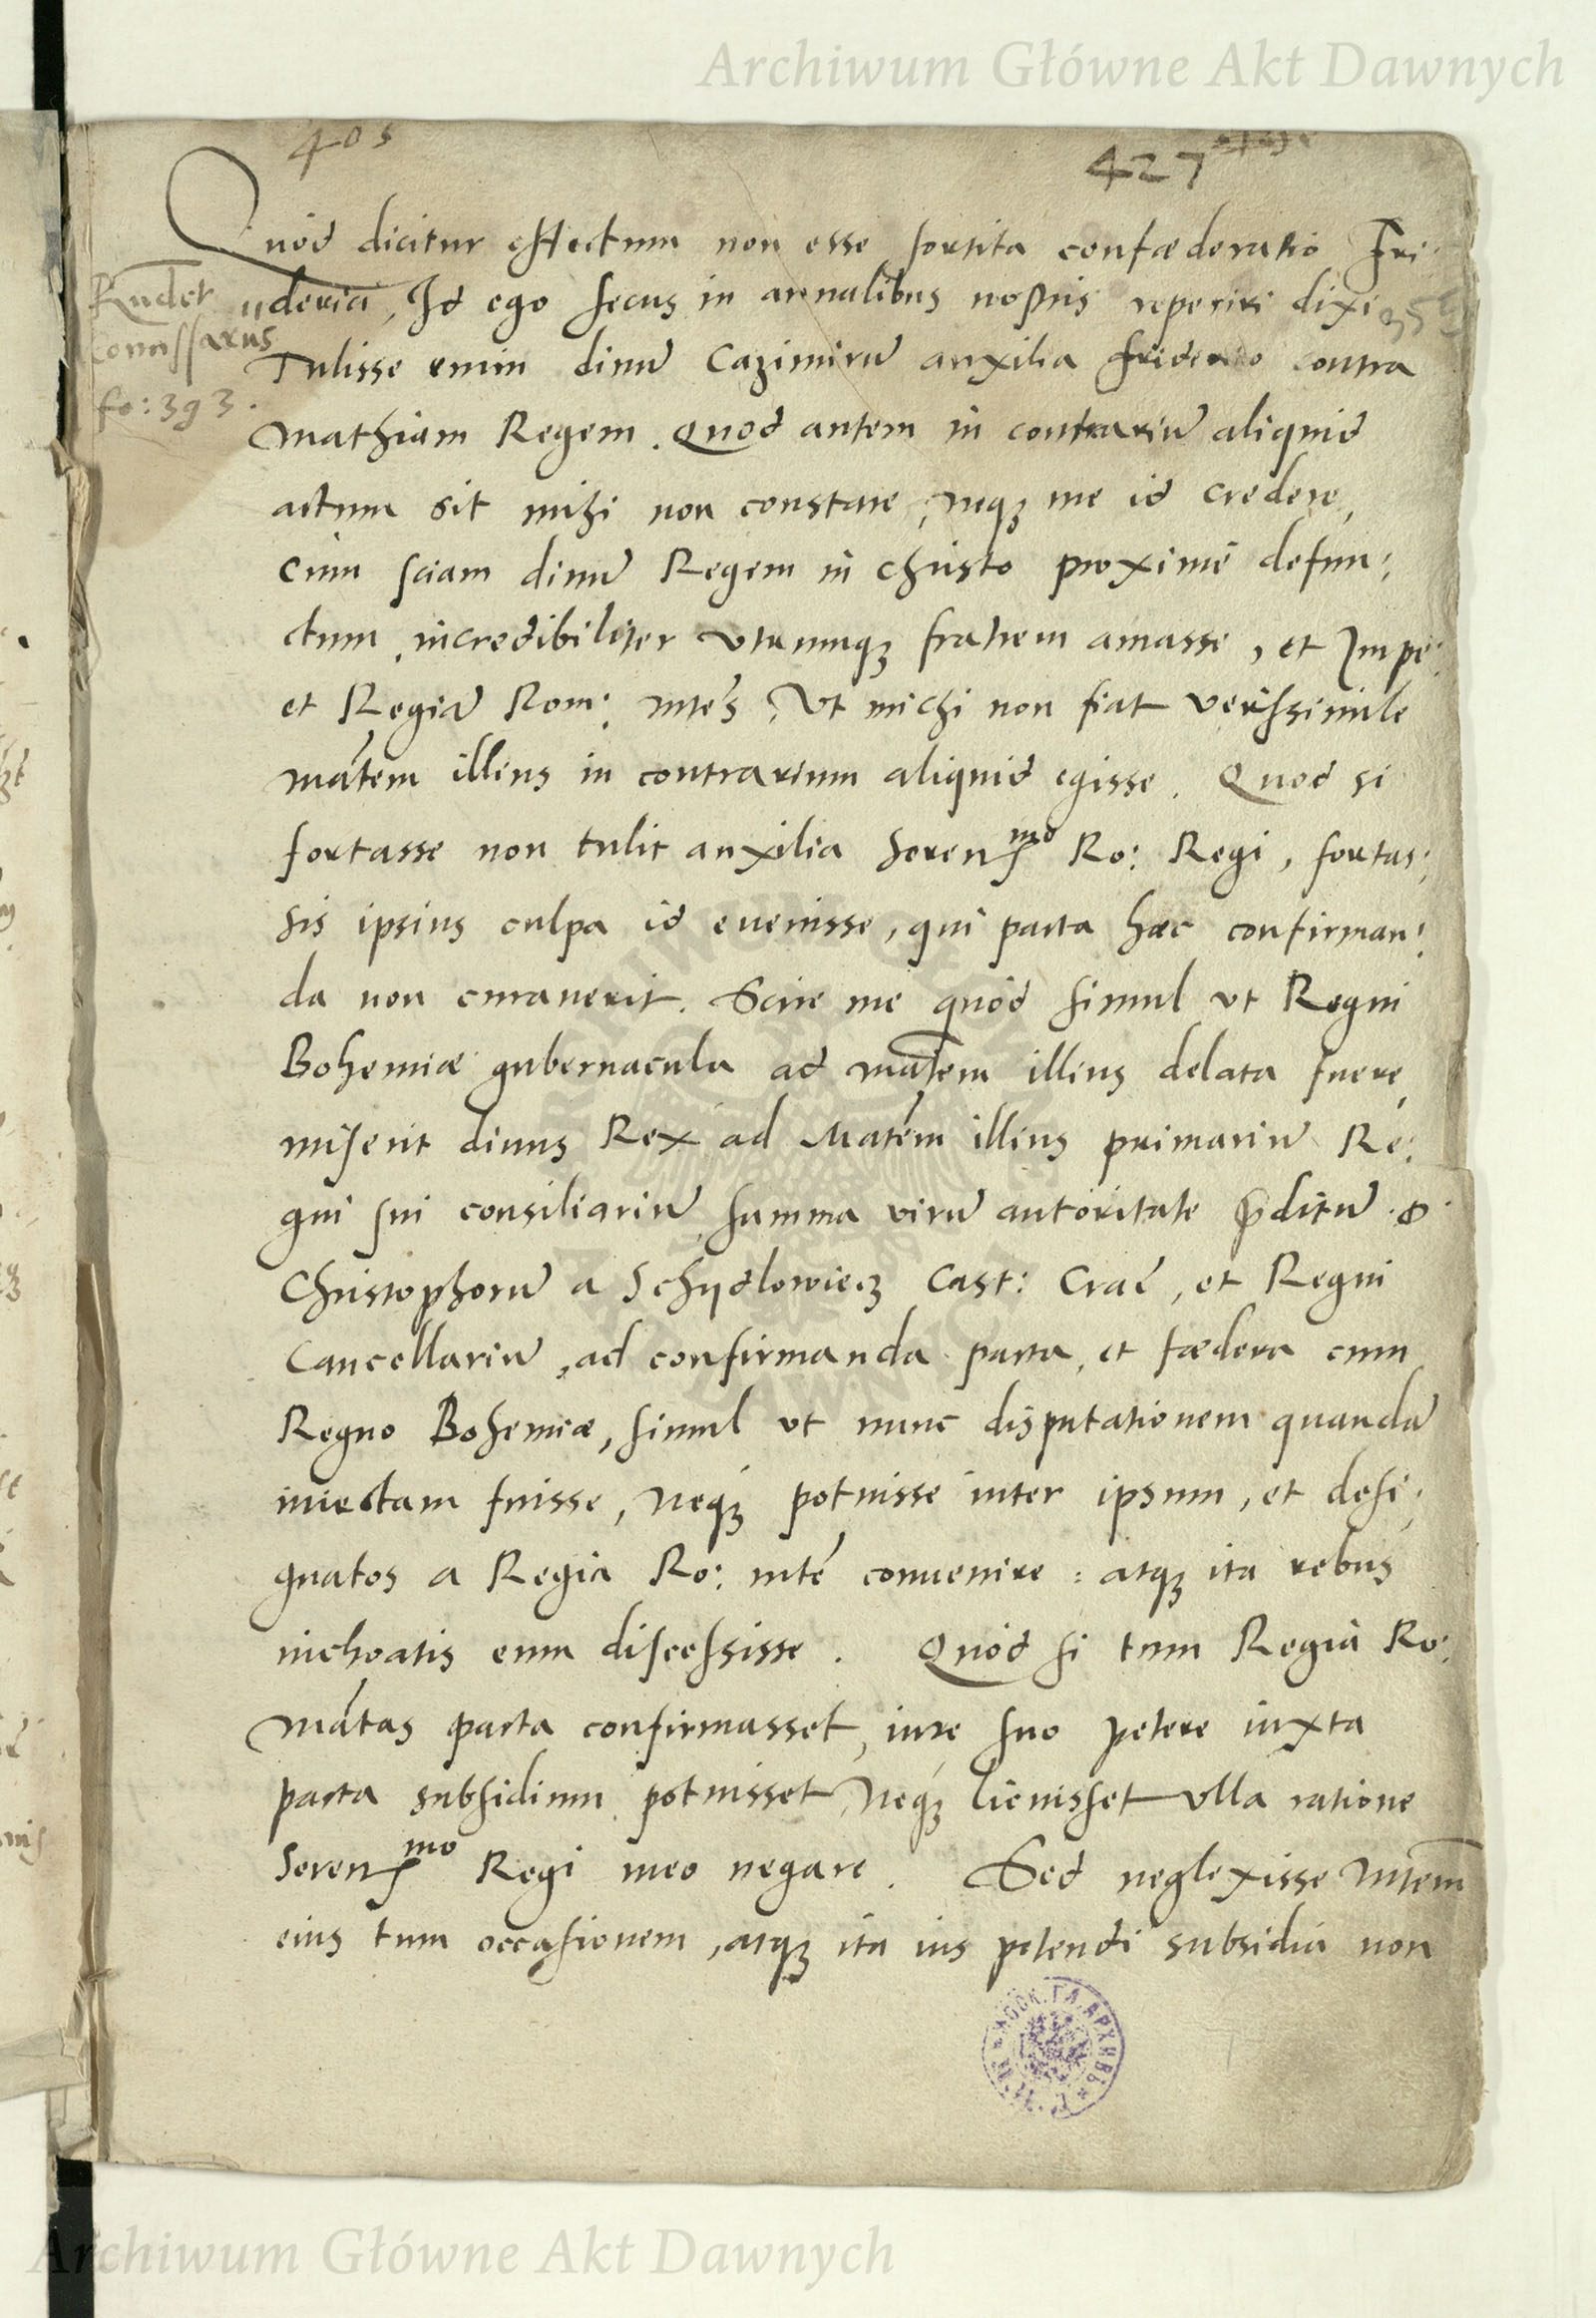 Archiwum Główne Akt Dawnych
405
427
Quód dicitur effectum non esse sortita confæderatio Fri:
dericia, Id ego secus in annalibus nostris reperiri dixi
Rudet
Comissarus
fo: 393.
Tulisse enim diuũ Cazimirũ auxilia friderico contra
Mathiam Regem. Quod autem in contrariũ aliquid
actum sit mihi non constare, neqȝ me id credere,
Cum sciam diuũ Regem in christo proximè defun:
ctum, incredibiliter vtrumqȝ fratrem amasse, et Impe:
et Regiã Rom: mtẽs, Vt michi non fiat verissimile
mãtem illius in contrarium aliquid egisse. Quod si
fortasse non tulit auxilia Seren^mo Ro: Regi, fortas:
sis ipsius culpa id euenisse, qui pacta hæc confirman:
da non curauerit. Scire me quód simul vt Regni
Bohemiæ gubernacula ad mãtem illius delata fuere,
miserit diuus Rex ad Matẽm illius primariũ Re:
gni sui consiliariũ, summa virũ autoritate p̃ditũ. D.
Christophorũ a Schydlowiecȝ Cast: Crac̃, et Regni
Cancellariũ, ad confirmanda pacta, et fædera cum
Regno Bohemiæ, simul vt nunc disputationem quandã
iniectam fuisse, neqȝ potuisse inter ipsum, et desi:
gnatos a Regia Ro: mtẽ conuenire: atqȝ ita rebus
inchoatis eum discessisse. Quód si tum Regia Ro:
mãtas pacta confirmasset, iure suo petere iuxta
pacta subsidium potuisset, Neqȝ licuisset vlla ratione
Seren^mo Regi meo negare. Sed neglexisse Mtem̃
eius tum occasionem, atqȝ ita ius petendi subsidia non
Archiwum Główne Akt Dawnych